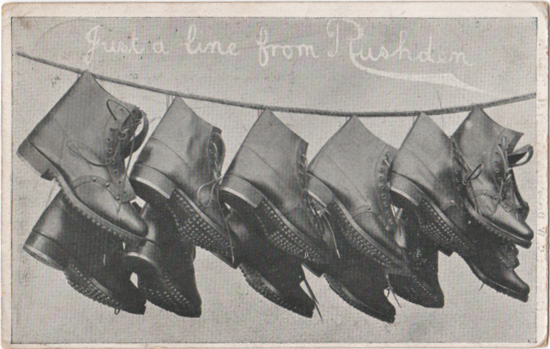 Just a line from Rushden